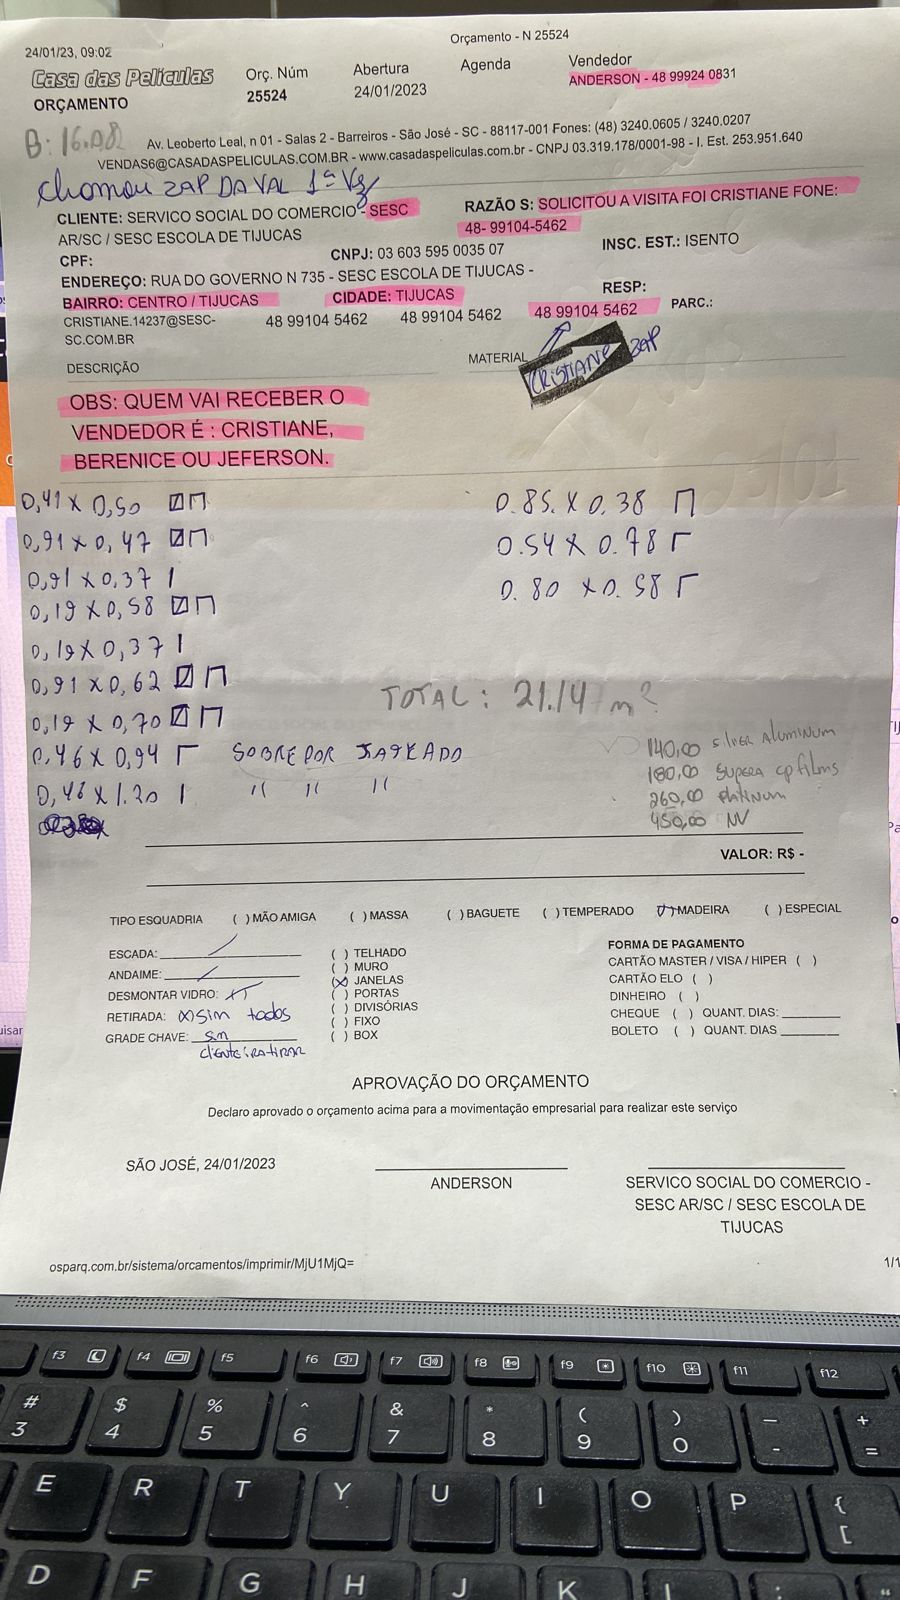 Orçamento - N 25524
24/01/23, 09:02
Casa das Películas
ORÇAMENTO
Orç. Núm
25524
Abertura
24/01/2023
Agenda
Vendedor
ANDERSON - 48 99924 0831
B: 16.082
Av. Leoberto Leal, n 01 - Salas 2 - Barreiros - São José - SC - 88117-001 Fones: (48) 3240.0605 / 3240.0207
VENDAS6@CASADASPELICULAS.COM.BR - www.casadaspeliculas.com.br - CNPJ 03.319.178/0001-98 - I. Est. 253.951.640
Chamou ZAP DA VAL 1ª Vz
CLIENTE: SERVICO SOCIAL DO COMERCIO - SESC
AR/SC / SESC ESCOLA DE TIJUCAS
RAZÃO S: SOLICITOU A VISITA FOI CRISTIANE FONE:
48- 99104-5462
CPF:
CNPJ: 03 603 595 0035 07
INSC. EST.: ISENTO
ENDEREÇO: RUA DO GOVERNO N 735 - SESC ESCOLA DE TIJUCAS -
BAIRRO: CENTRO / TIJUCAS
CIDADE: TIJUCAS
RESP:
CRISTIANE.14237@SESC-
SC.COM.BR
48 99104 5462
48 99104 5462
48 99104 5462
PARC.:
CRISTIANE ZAP
DESCRIÇÃO
MATERIAL
OBS: QUEM VAI RECEBER O
VENDEDOR É : CRISTIANE,
BERENICE OU JEFERSON.
0,41 x 0,50
0,91 x 0,47
0,91 x 0,37
0,19 x 0,58
0,19 x 0,37
0,91 x 0,62
0,19 x 0,70
0,46 x 0,94 SOBREPOR JATEADO
0,46 x 1.20 " " "
0.85. x 0.38
0.54 x 0.78
0.80 x 0.58
TOTAL: 21.14 m²
140,00 Silver Aluminum
180,00 Supera cpfilms
260,00 Platinum
450,00 NV
VALOR: R$ -
TIPO ESQUADRIA ( ) MÃO AMIGA ( ) MASSA ( ) BAGUETE ( ) TEMPERADO ( ) MADEIRA ( ) ESPECIAL
ESCADA:
ANDAIME:
DESMONTAR VIDRO:
RETIRADA: (x) Sim todos
GRADE CHAVE: Sim
cliente ira tirar
( ) TELHADO
( ) MURO
(x) JANELAS
( ) PORTAS
( ) DIVISÓRIAS
( ) FIXO
( ) BOX
FORMA DE PAGAMENTO
CARTÃO MASTER / VISA / HIPER ( )
CARTÃO ELO ( )
DINHEIRO ( )
CHEQUE ( ) QUANT. DIAS:
BOLETO ( ) QUANT. DIAS
APROVAÇÃO DO ORÇAMENTO
Declaro aprovado o orçamento acima para a movimentação empresarial para realizar este serviço
SÃO JOSÉ, 24/01/2023
ANDERSON
SERVICO SOCIAL DO COMERCIO -
SESC AR/SC / SESC ESCOLA DE
TIJUCAS
osparq.com.br/sistema/orcamentos/imprimir/MjU1MjQ=
1/1
f3 f4 f5 f6 f7 f8 f9 f10 f11 f12
# $ % ^ & * ( ) _ +
3 4 5 6 7 8 9 0 - =
E R T Y U I O P { [
D F G H J K L : "